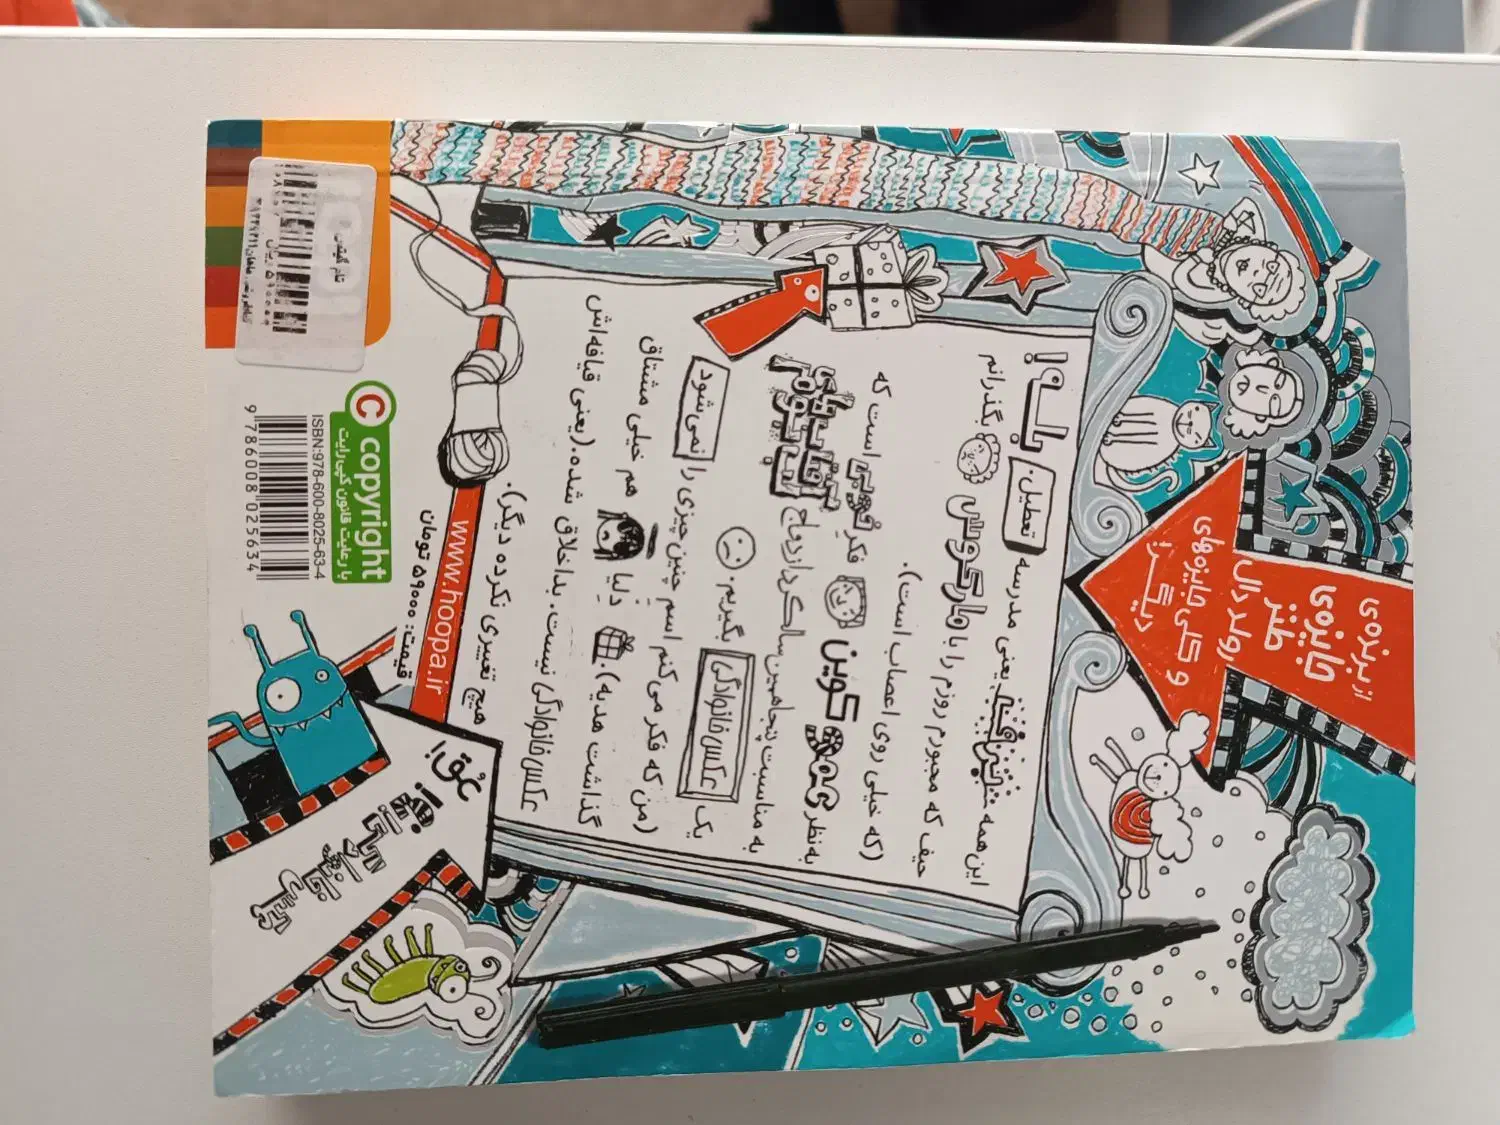 از برنده‌ی
جایزه‌ی
طنز
رولد دال
و کلی جایزه‌های
دیگر!
بله!
این همه یعنی مدرسه تعطیل.
حیف که مجبورم روزم را با مارکوس بگذرانم
(که خیلی روی اعصاب است).
به نظر عمو کوین فکر خوبی است که
به مناسبت پنجاهمین سالگرد ازدواج
یک عکس خانوادگی بگیریم.
(من که فکر می‌کنم اسم چنین چیزی را نمی‌شود
گذاشت هدیه). دِلیا هم خیلی مشتاق
عکس خانوادگی نیست. بداخلاق شده. (یعنی قیافه‌اش
هیچ تغییری نکرده دیگر).
عُق!
www.hoopa.ir
قیمت: ۵۹۰۰۰ تومان
copyright
با رعایت قانون کپی رایت
ISBN:978-600-8025-63-4
9 786008 025634